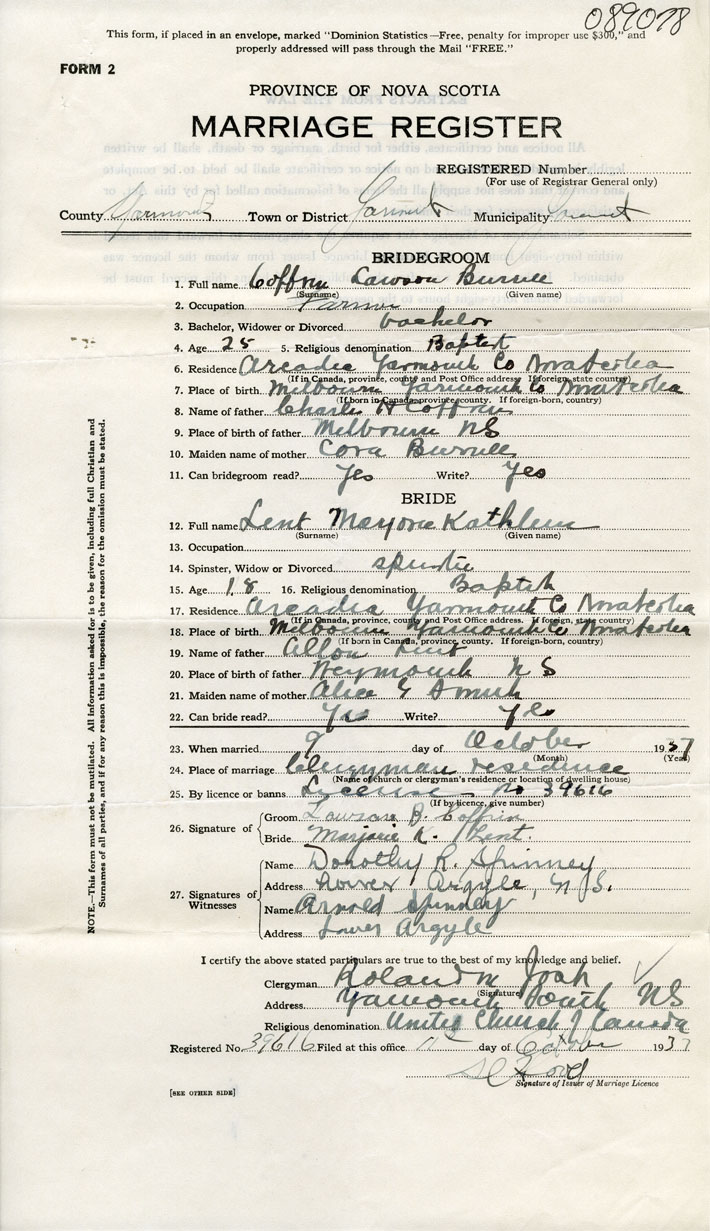 089078
This form, if placed in an envelope, marked "Dominion Statistics—Free, penalty for improper use $300," and
properly addressed will pass through the Mail "FREE."
FORM 2
PROVINCE OF NOVA SCOTIA
MARRIAGE REGISTER
REGISTERED Number
(For use of Registrar General only)
County Yarmouth Town or District Yarmouth Municipality
BRIDEGROOM
1. Full name Coffin Lawson Burrell
(Surname) (Given name)
2. Occupation Farmer
3. Bachelor, Widower or Divorced bachelor
4. Age 25 5. Religious denomination Baptist
6. Residence Arcadia Yarmouth Co Nova Scotia
(If in Canada, province, county and Post Office address. If foreign, state country)
7. Place of birth Melbourne Yarmouth Co Nova Scotia
(If born in Canada, province, county. If foreign-born, country)
8. Name of father Charles H Coffin
9. Place of birth of father Melbourne NS
10. Maiden name of mother Cora Burrell
11. Can bridegroom read? Yes Write? Yes
BRIDE
12. Full name Lent Marjorie Kathleen
(Surname) (Given name)
13. Occupation
14. Spinster, Widow or Divorced spinster
15. Age 18 16. Religious denomination Baptist
17. Residence Arcadia Yarmouth Co Nova Scotia
(If in Canada, province, county and Post Office address. If foreign, state country)
18. Place of birth Melbourne Yarmouth Co Nova Scotia
(If born in Canada, province, county. If foreign-born, country)
19. Name of father Lent
20. Place of birth of father Weymouth N S
21. Maiden name of mother Alice G
22. Can bride read? Yes Write? Yes
23. When married 9 day of October 1937
(Month) (Year)
24. Place of marriage Clergyman residence
(Name of church or clergyman's residence or location of dwelling house)
25. By licence or banns License No 39616
(If by licence, give number)
26. Signature of Groom Lawson B. Coffin
Bride Marjorie K. Lent.
27. Signatures of Witnesses
Name Dorothy R. Spinney
Address Lower Argyle, N.S.
Name Arnold Spinney
Address Lower Argyle
I certify the above stated particulars are true to the best of my knowledge and belief.
Clergyman Roland
(Signature)
Address Yarmouth South NS
Religious denomination United Church of Canada
Registered No. 39616 Filed at this office 11 day of October 1937
Signature of Issuer of Marriage Licence
[SEE OTHER SIDE]
NOTE.—This form must not be mutilated. All information asked for is to be given, including full Christian and
Surnames of all parties, and if for any reason this is impossible, the reason for the omission must be stated.